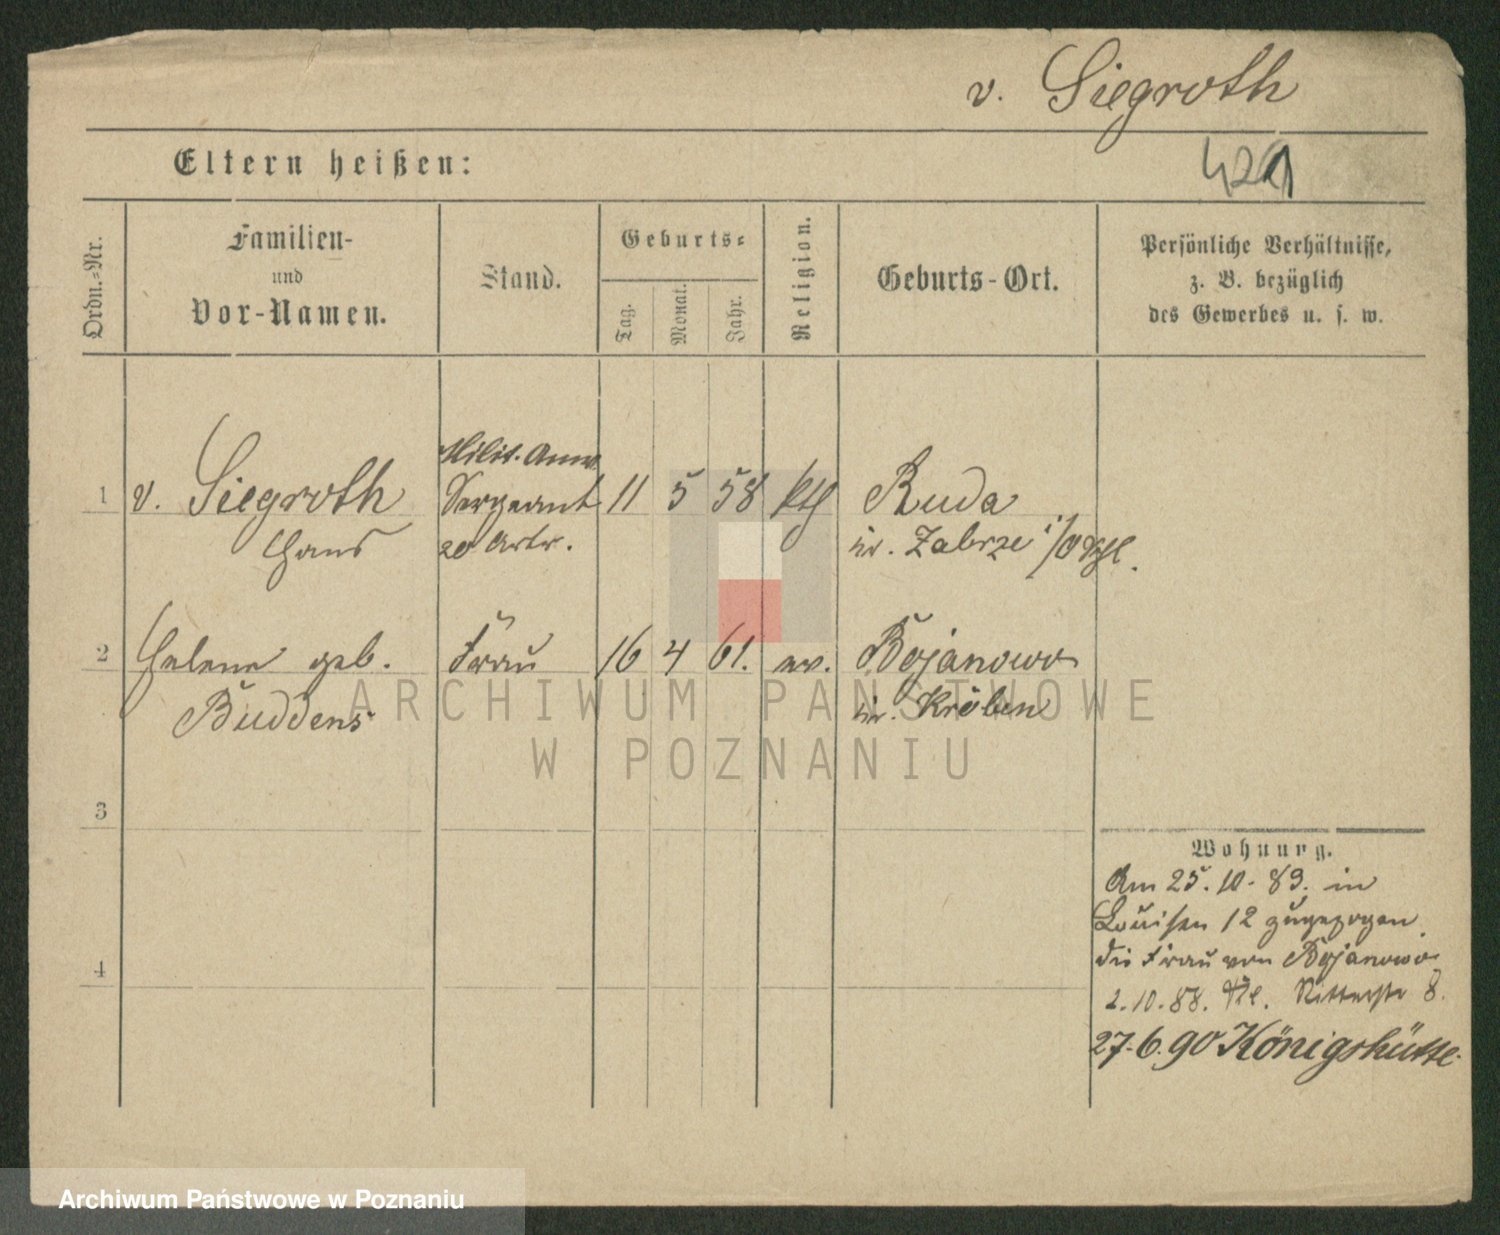 v. Siegroth
Eltern heißen:
421
Ordn.-Nr.
Familien-
und
Vor-Namen.
Stand.
Geburts-
Tag.
Monat.
Jahr.
Religion.
Geburts-Ort.
Persönliche Verhältnisse,
z. B. bezüglich
des Gewerbes u. s. w.
1 v. Siegroth
Hans
Milit. Anw.
Sergeant
20 Artr.
11 5 58 kth
Ruda
kr. Zabrze i/O Schl.
2 Helene geb.
Buddens
Frau
16 4 61. ev.
Bojanowo
kr. Kröben
3
4
Wohnung.
Am 25.10.89. in
Louisen 12 zugezogen
die Frau von Bojanowo
2.10.88. Ritterstr 8.
27.6.90 Königshütte.
ARCHIWUM PAŃSTWOWE
W POZNANIU
Archiwum Państwowe w Poznaniu